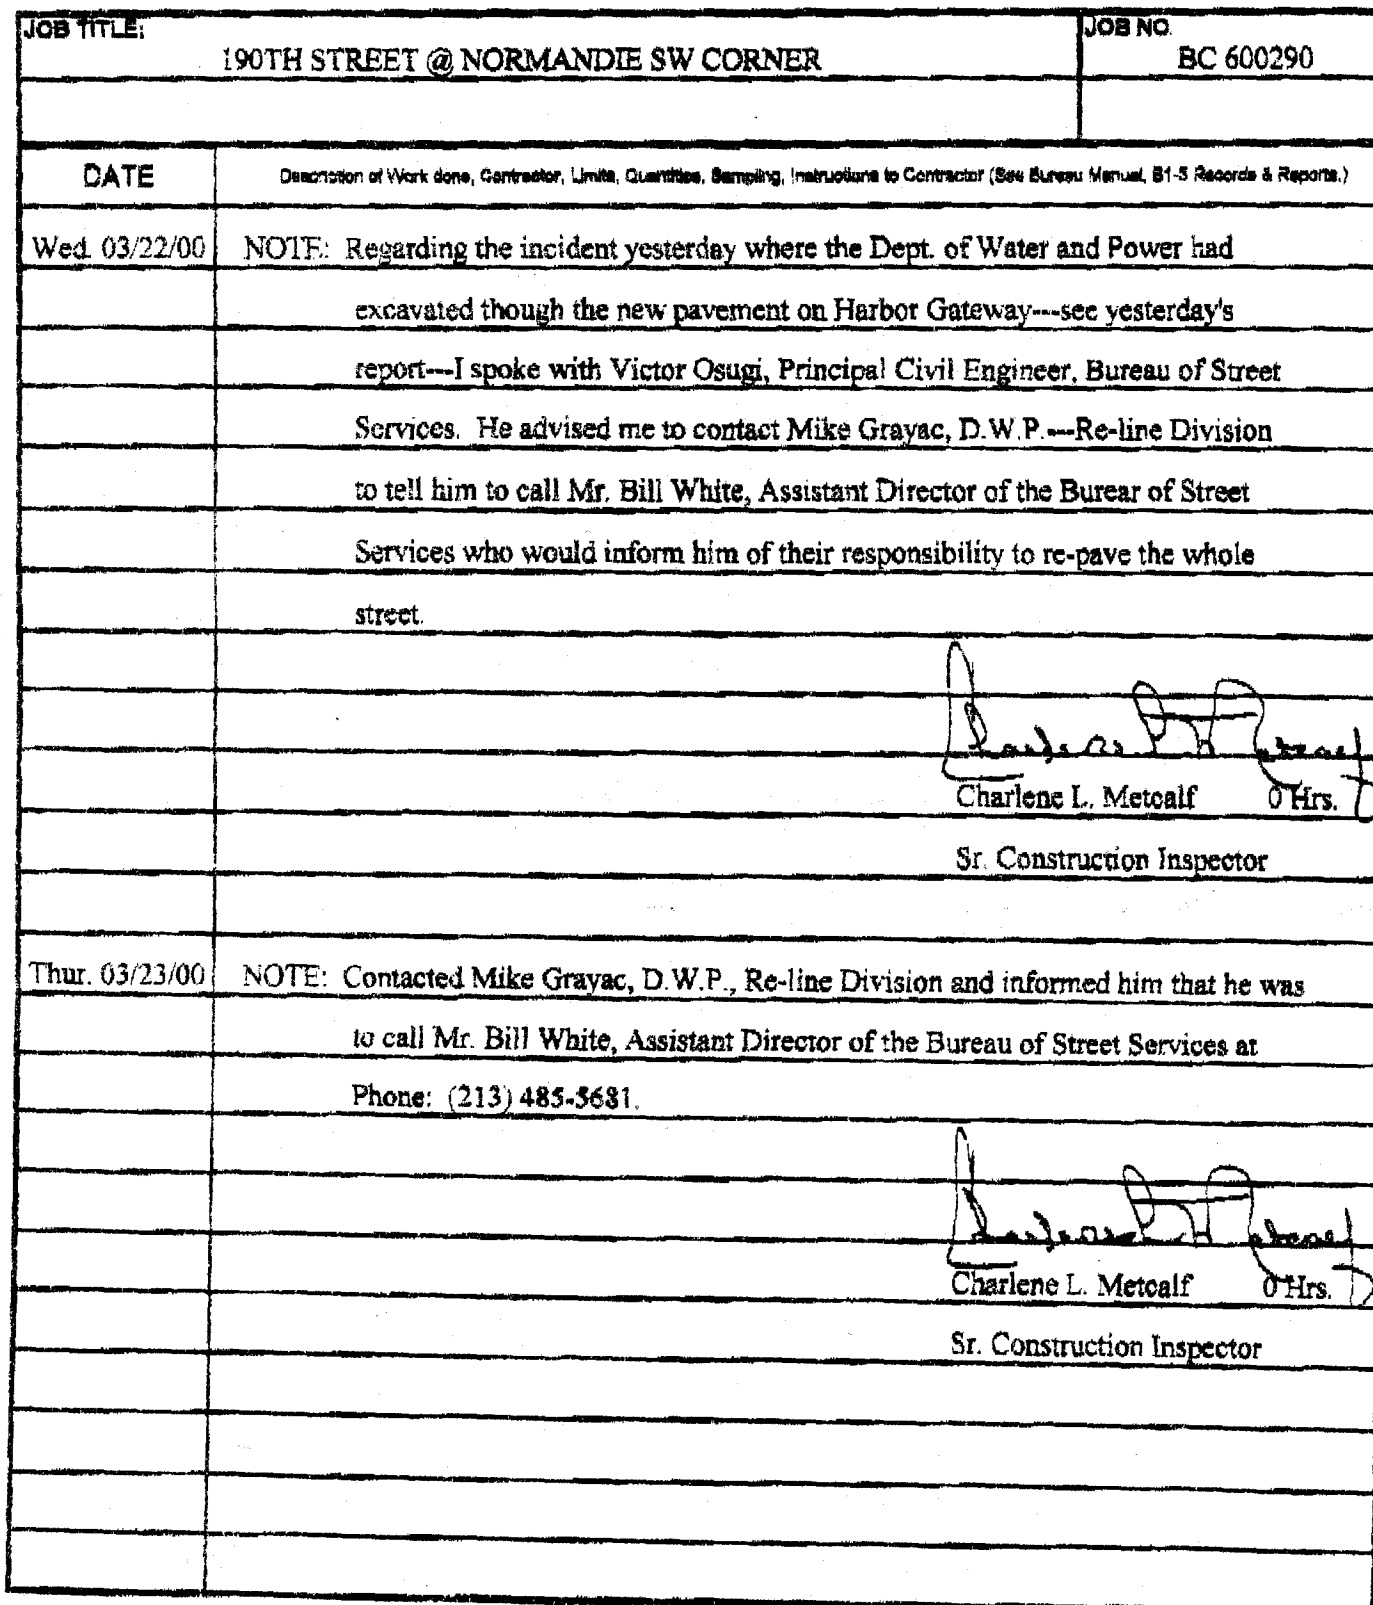 JOB TITLE:
JOB NO.
190TH STREET @ NORMANDIE SW CORNER
BC 600290
DATE
Description of Work done, Contractor, Limits, Quantities, Sampling, Instructions to Contractor (See Bureau Manual, B1-5 Records & Reports.)
Wed. 03/22/00 NOTE: Regarding the incident yesterday where the Dept. of Water and Power had
excavated though the new pavement on Harbor Gateway---see yesterday's
report---I spoke with Victor Osugi, Principal Civil Engineer, Bureau of Street
Services. He advised me to contact Mike Grayac, D.W.P.---Re-line Division
to tell him to call Mr. Bill White, Assistant Director of the Burear of Street
Services who would inform him of their responsibility to re-pave the whole
street.
Charlene L. Metcalf
Charlene L. Metcalf 0 Hrs.
Sr. Construction Inspector
Thur. 03/23/00 NOTE: Contacted Mike Grayac, D.W.P., Re-line Division and informed him that he was
to call Mr. Bill White, Assistant Director of the Bureau of Street Services at
Phone: (213) 485-5681.
Charlene L. Metcalf
Charlene L. Metcalf 0 Hrs.
Sr. Construction Inspector